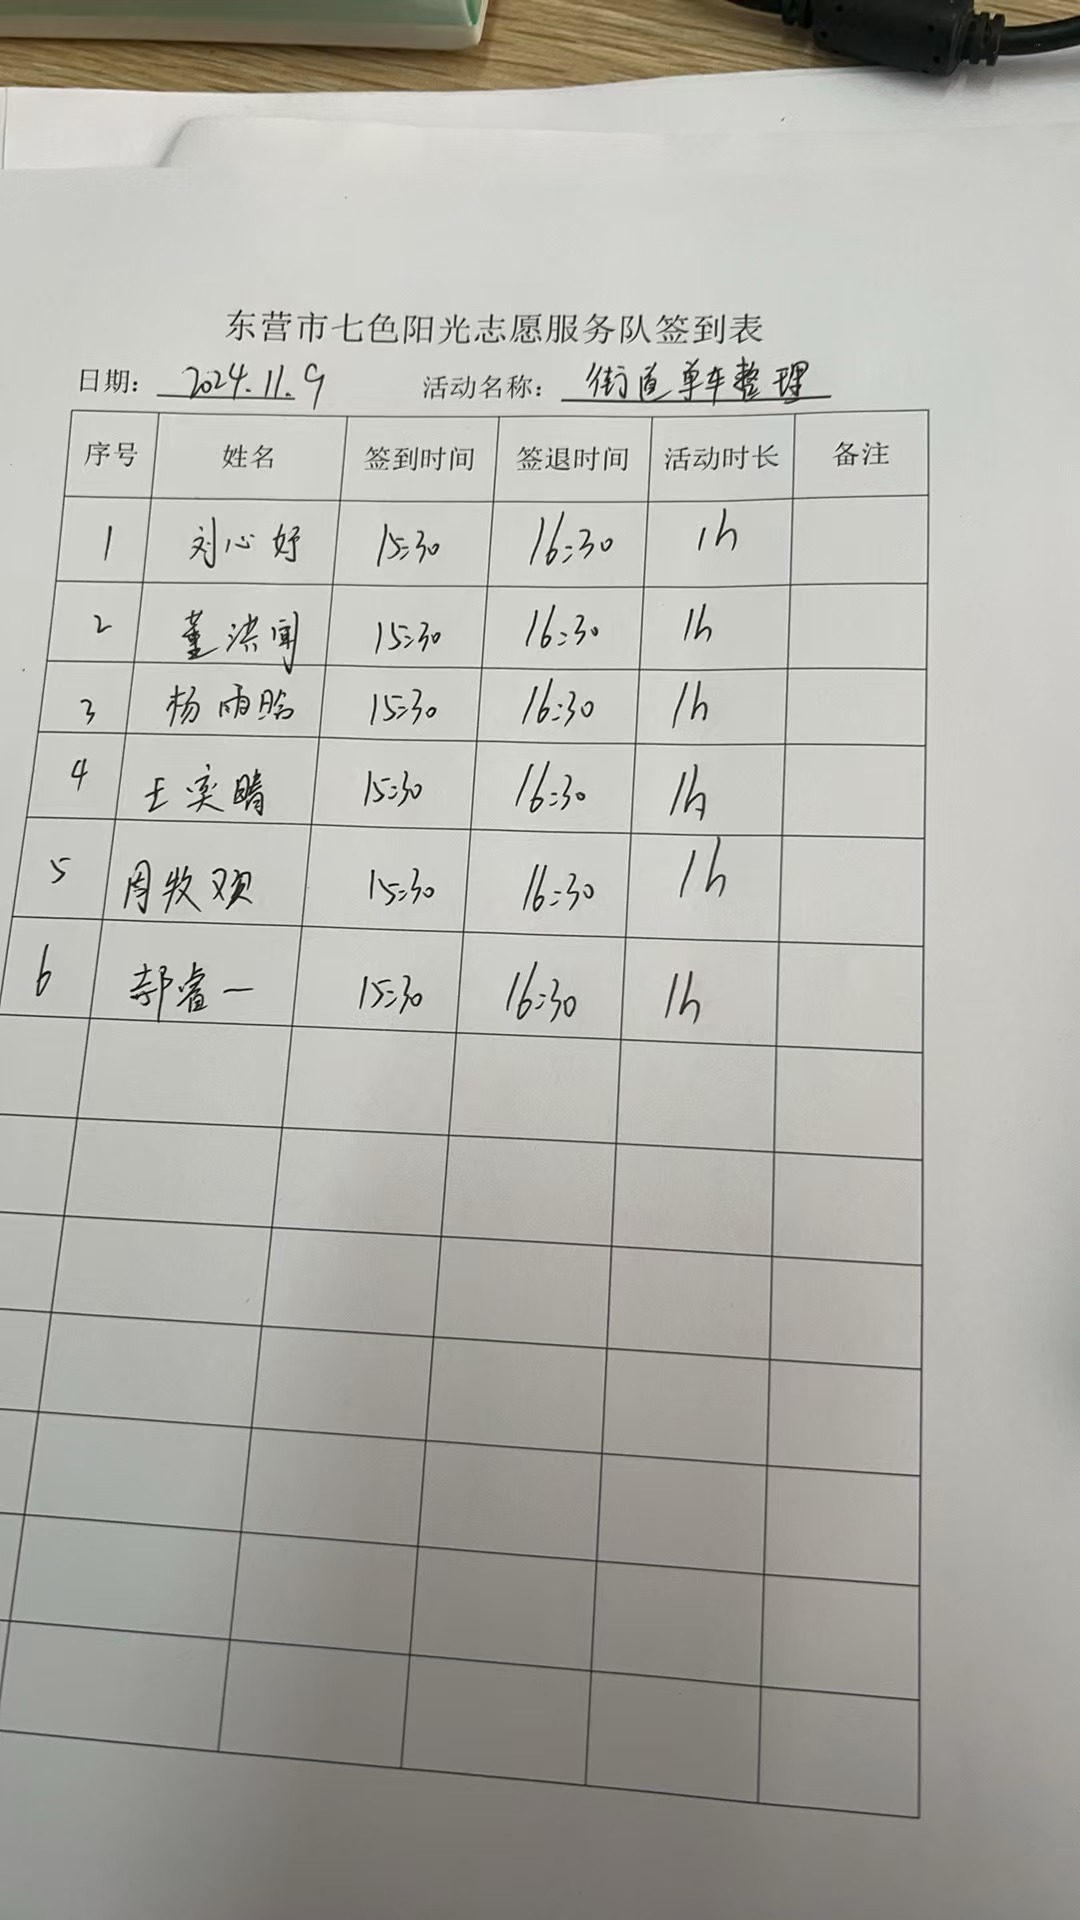 东营市七色阳光志愿服务队签到表
日期: 2024.11.9 活动名称: 街道单车整理
序号 姓名 签到时间 签退时间 活动时长 备注
1 刘心妤 15:30 16:30 1h
2 董洪闻 15:30 16:30 1h
3 杨雨晗 15:30 16:30 1h
4 王奕晴 15:30 16:30 1h
5 周牧 15:30 16:30 1h
6 郝睿一 15:30 16:30 1h